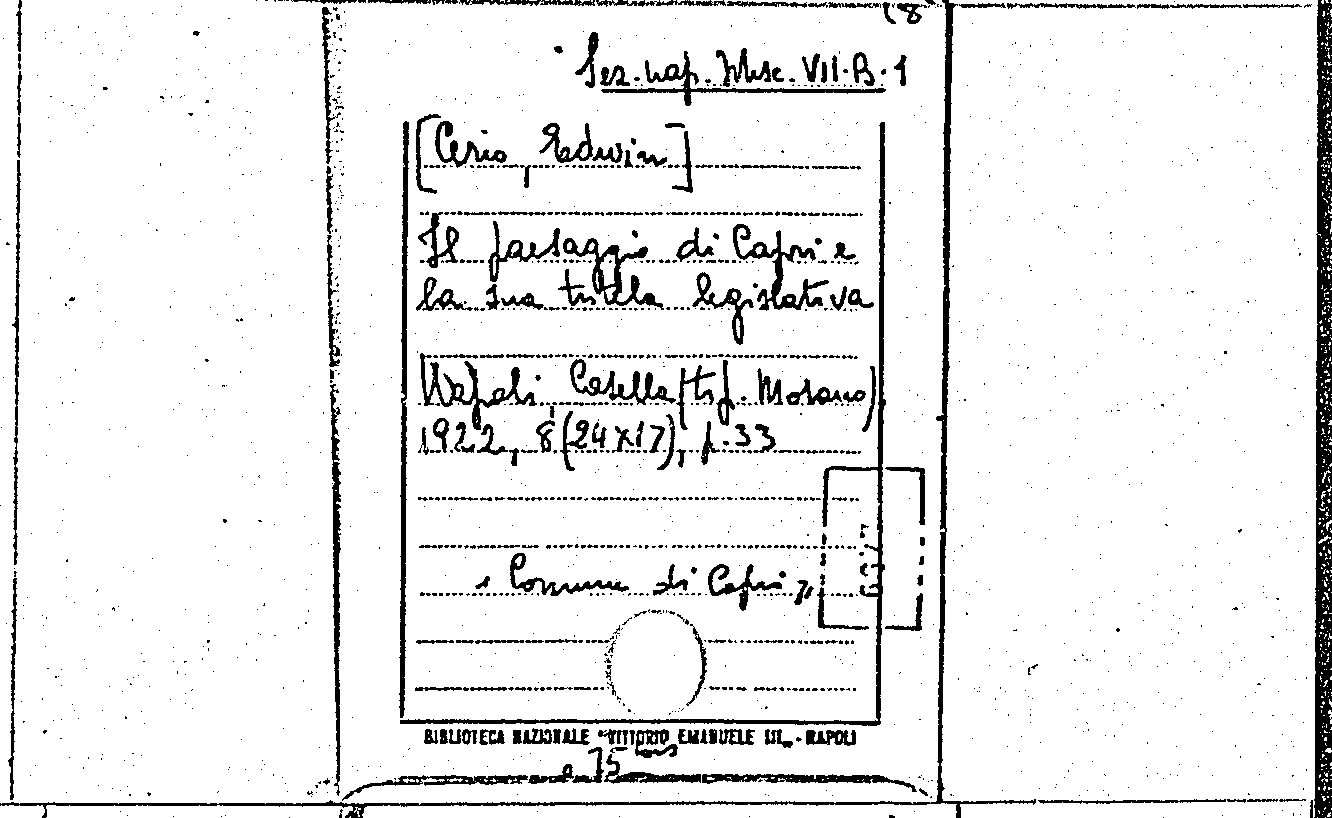 (8
Sez. nap. Misc. VII. B. 1
[Cerio, Edwin]
Il paesaggio di Capri e
la sua tutela legislativa
Napoli, Casella (tip. Morano)
1922, 8 (24x17), p. 33
« Comune di Capri »
BIBLIOTECA NAZIONALE "VITTORIO EMANUELE III" - NAPOLI
75